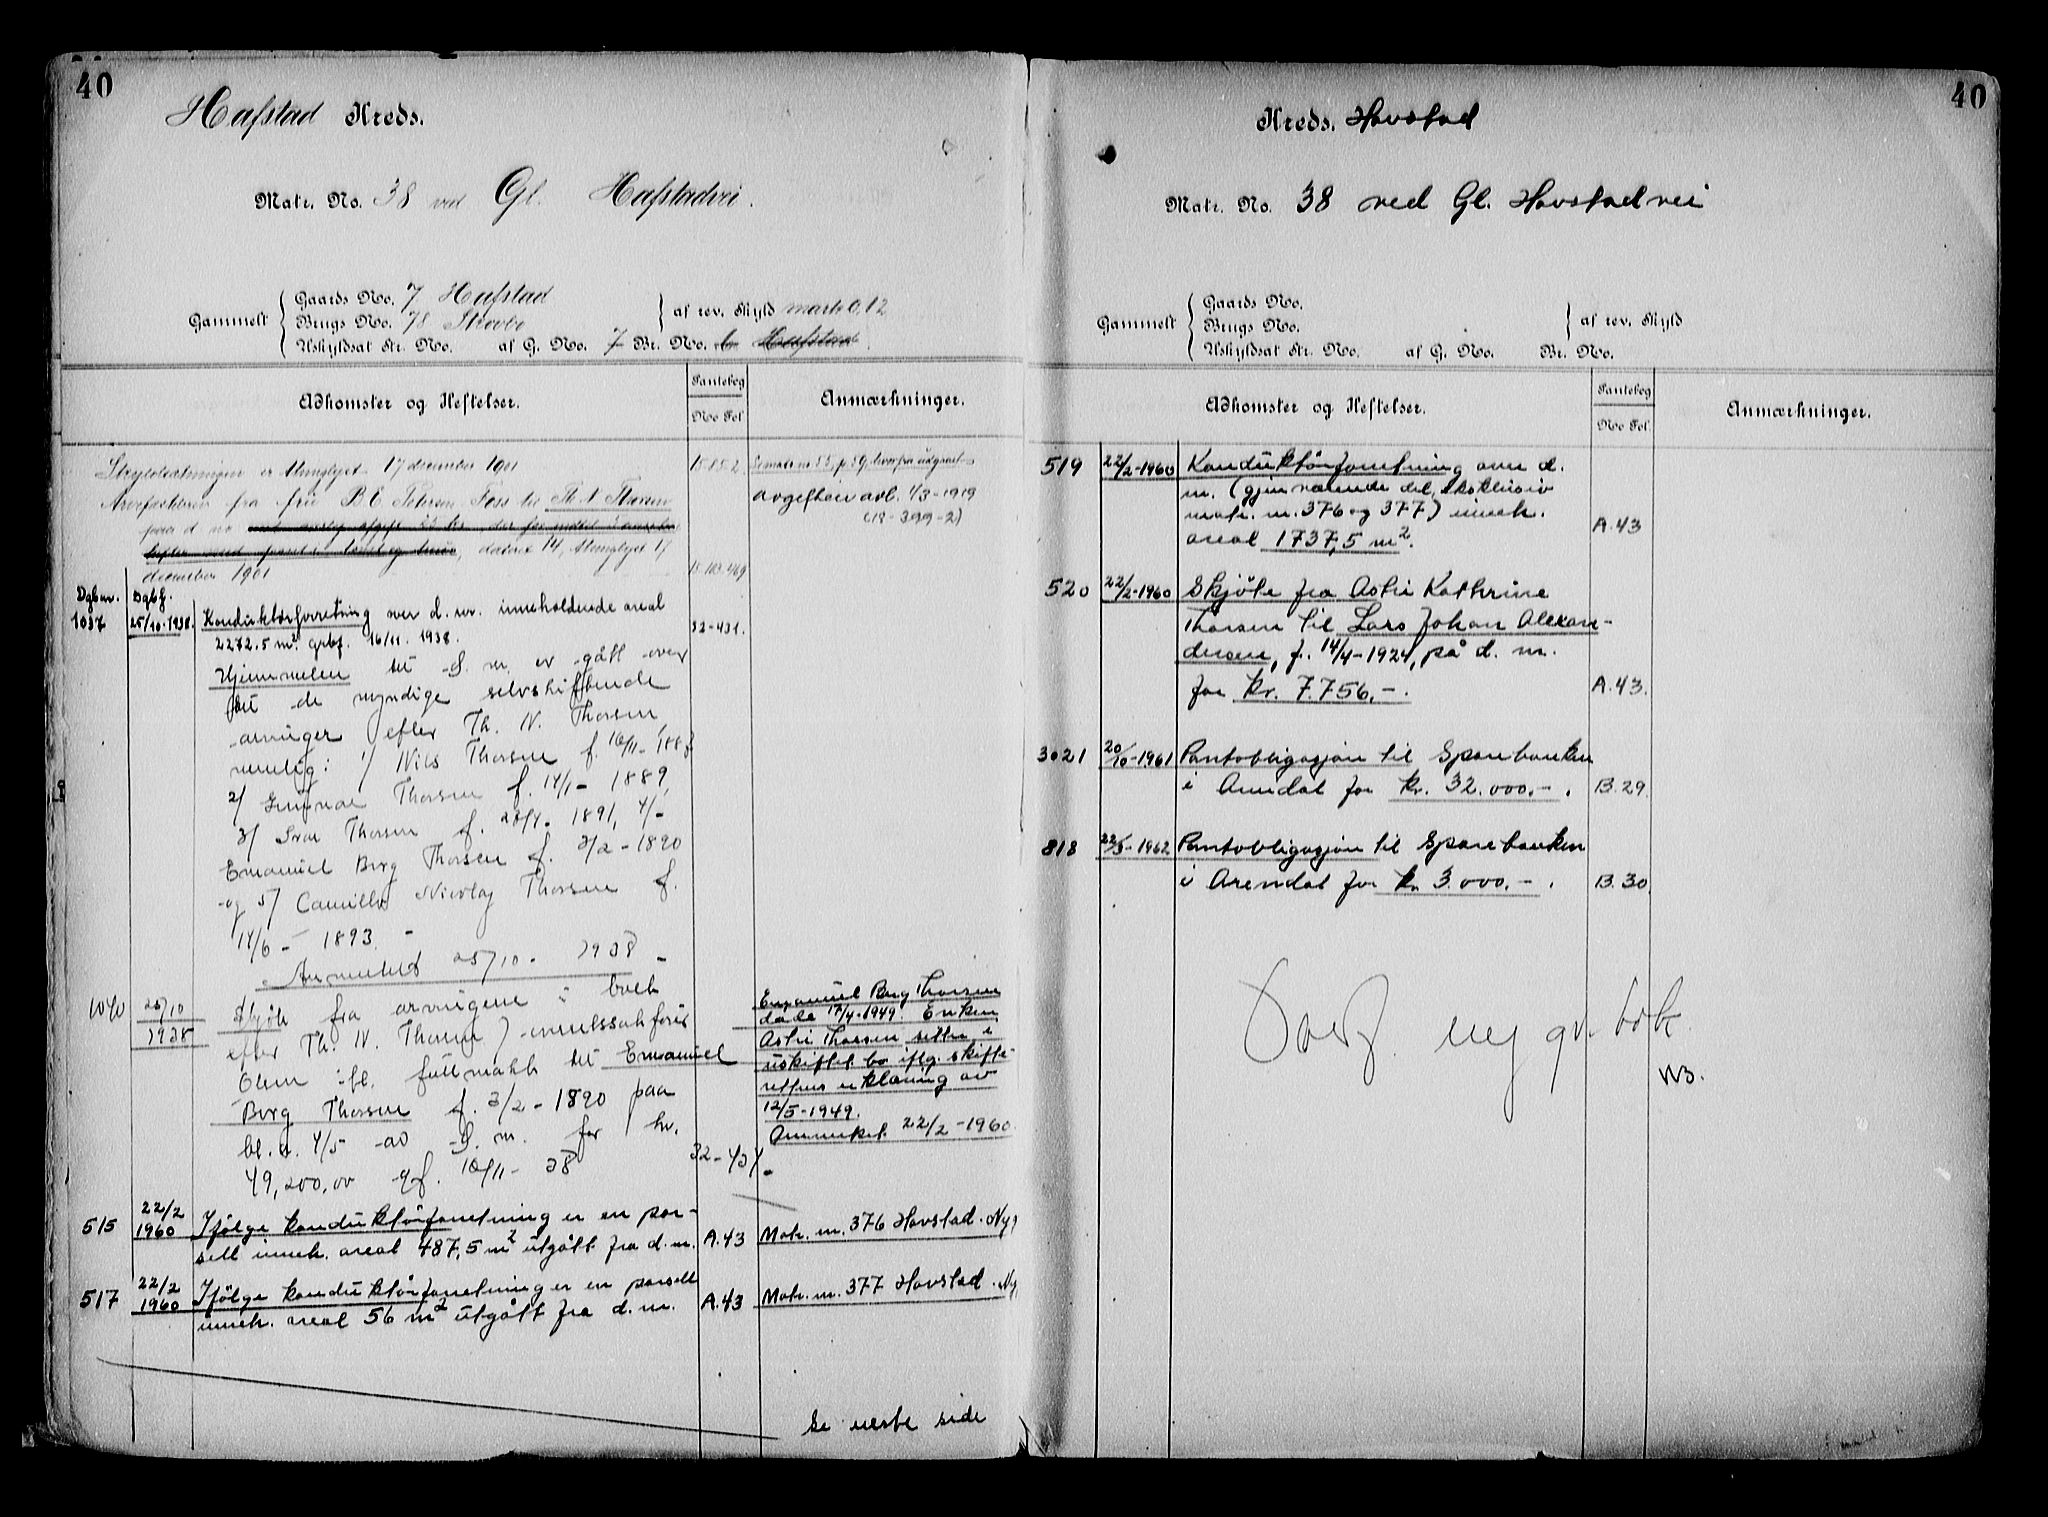 40
Hafstad Kreds.
Matr. No. 38 ved Gl. Hafstadvei.
Gammelt
Gaards No. 7 Hafstad
Brugs No. 78
Uskyldsat Str. No. af G. No. 7 Br. No.
af rev. Skyld mark 0,12
Adkomster og Heftelser.
Pantebog
No Fol.
Anmærkninger.
Skylddelingen er thinglyst 17 december 1901
15.152.
Arvefæstebrev fra frú B. E. Petersen Foss til Th. N. Thorsen
paa d. no
dateret 14, thinglyst 17
december 1901
15.103.469
avgiften avl. 1/3-1919
(18-399-2)
Dgbnr. Dgbf.
1037 25/10.1938. Konduktørforretning over d. nr. inneholdende areal
2272.5 m². grbf. 16/11. 1938.
32-431.
Hjemmelen til d. m. er gått over
til de myndige selvskiftende
arvinger efter Th. N. Thorsen,
nemlig: 1/ Nils Thorsen f. 16/11-188
2/ Gunnar Thorsen f. 14/1- 1889,
3/ Ivar Thorsen f. 1891, 4/-
Emanuel Berg Thorsen f. 3/2-1890
og 5/ Camilla Nicolay Thorsen f.
14/6- 1893.-
Anmerket 25/10- 1938-
1040 25/10 1938 Skjøte fra arvingene i boet
efter Th. N. Thorsen
fullmakt til Emanuel
Berg Thorsen f. 3/2-1890 paa
bl. a. 4/5 av d. m. for kr.
49,200,00 16/11- 38
32-431-
Emanuel Berg Thorsen
døde 17/4-1949. Enken
Astri Thorsen sitter i
uskiftet bo iflg. skifte-
rettens erklæring av
12/5-1949.
Anmerket 22/2-1960.
515 22/2 1960 Ifølge konduktørforretning er en par-
sell inneh. areal 487,5 m² utgått fra d. m.
A.43
Matr. nr. 376 Havstad. Ny
517 22/2 1960 Ifølge konduktørforretning er en parsell
inneh. areal 56 m² utgått fra d. m.
A.43
Matr. nr. 377 Havstad. Ny
Se neste side
40
Kreds. Havstad
Matr. No. 38 ved Gl. Havstadvei
Gammelt
Gaards No.
Brugs No.
Uskyldsat Str. No. af G. No. Br. No.
af rev. Skyld
Adkomster og Heftelser.
Pantebog
No Fol.
Anmærkninger.
519 22/2-1960 Konduktørforretning over d.
m. (gjenværende del, eksklusiv
matr. nr. 376 og 377) inneh.
areal 1737,5 m².
A.43
520 22/2-1960 Skjøte fra Astri Kathrine
Thorsen til Lars Johan Alexan-
dersen, f. 14/4-1924, på d. m.
for kr. 7.756,-.
A.43.
3021 20/10-1961 Pantobligasjon til Sparebanken
i Arendal for kr. 32.000.-.
B.29.
818 22/3-1962 Pantobligasjon til Sparebanken
i Arendal for kr 3.000.-.
B.30
Overf. ny gr. bok